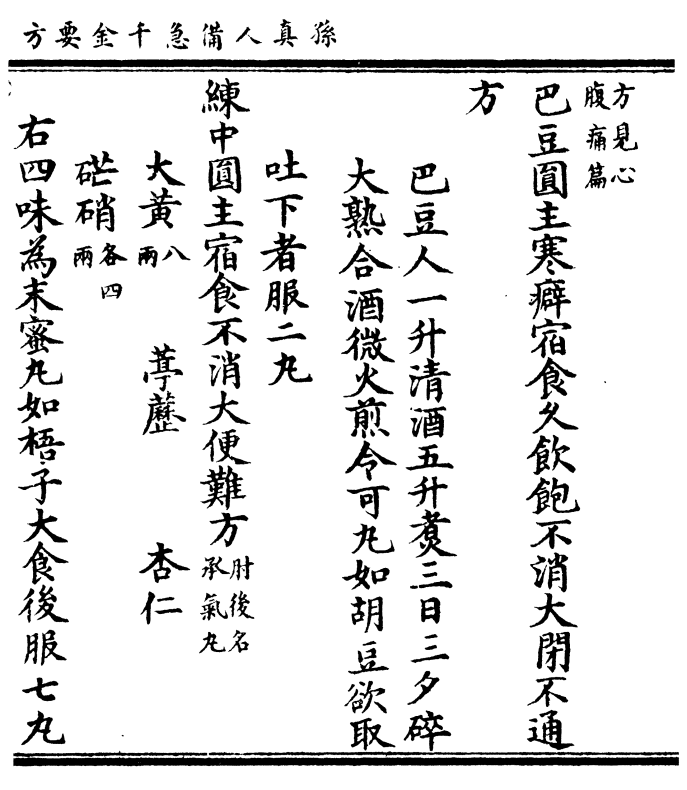 孫真人備急千金要方
方見心
腹痛篇
巴豆圓主寒癖宿食久飲飽不消大閉不通
方
巴豆人一升清酒五升煑三日三夕碎
大熟合酒微火煎令可丸如胡豆欲取
吐下者服二丸
練中圓主宿食不消大便難方肘後名承氣丸
大黃八兩 葶藶 杏仁
芒硝各四兩
右四味為末蜜丸如梧子大食後服七丸